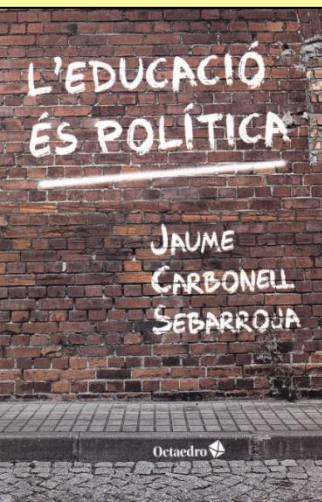 L'EDUCACIÓ
ÉS POLÍTICA
JAUME
CARBONELL
SEBARROJA
Octaedro